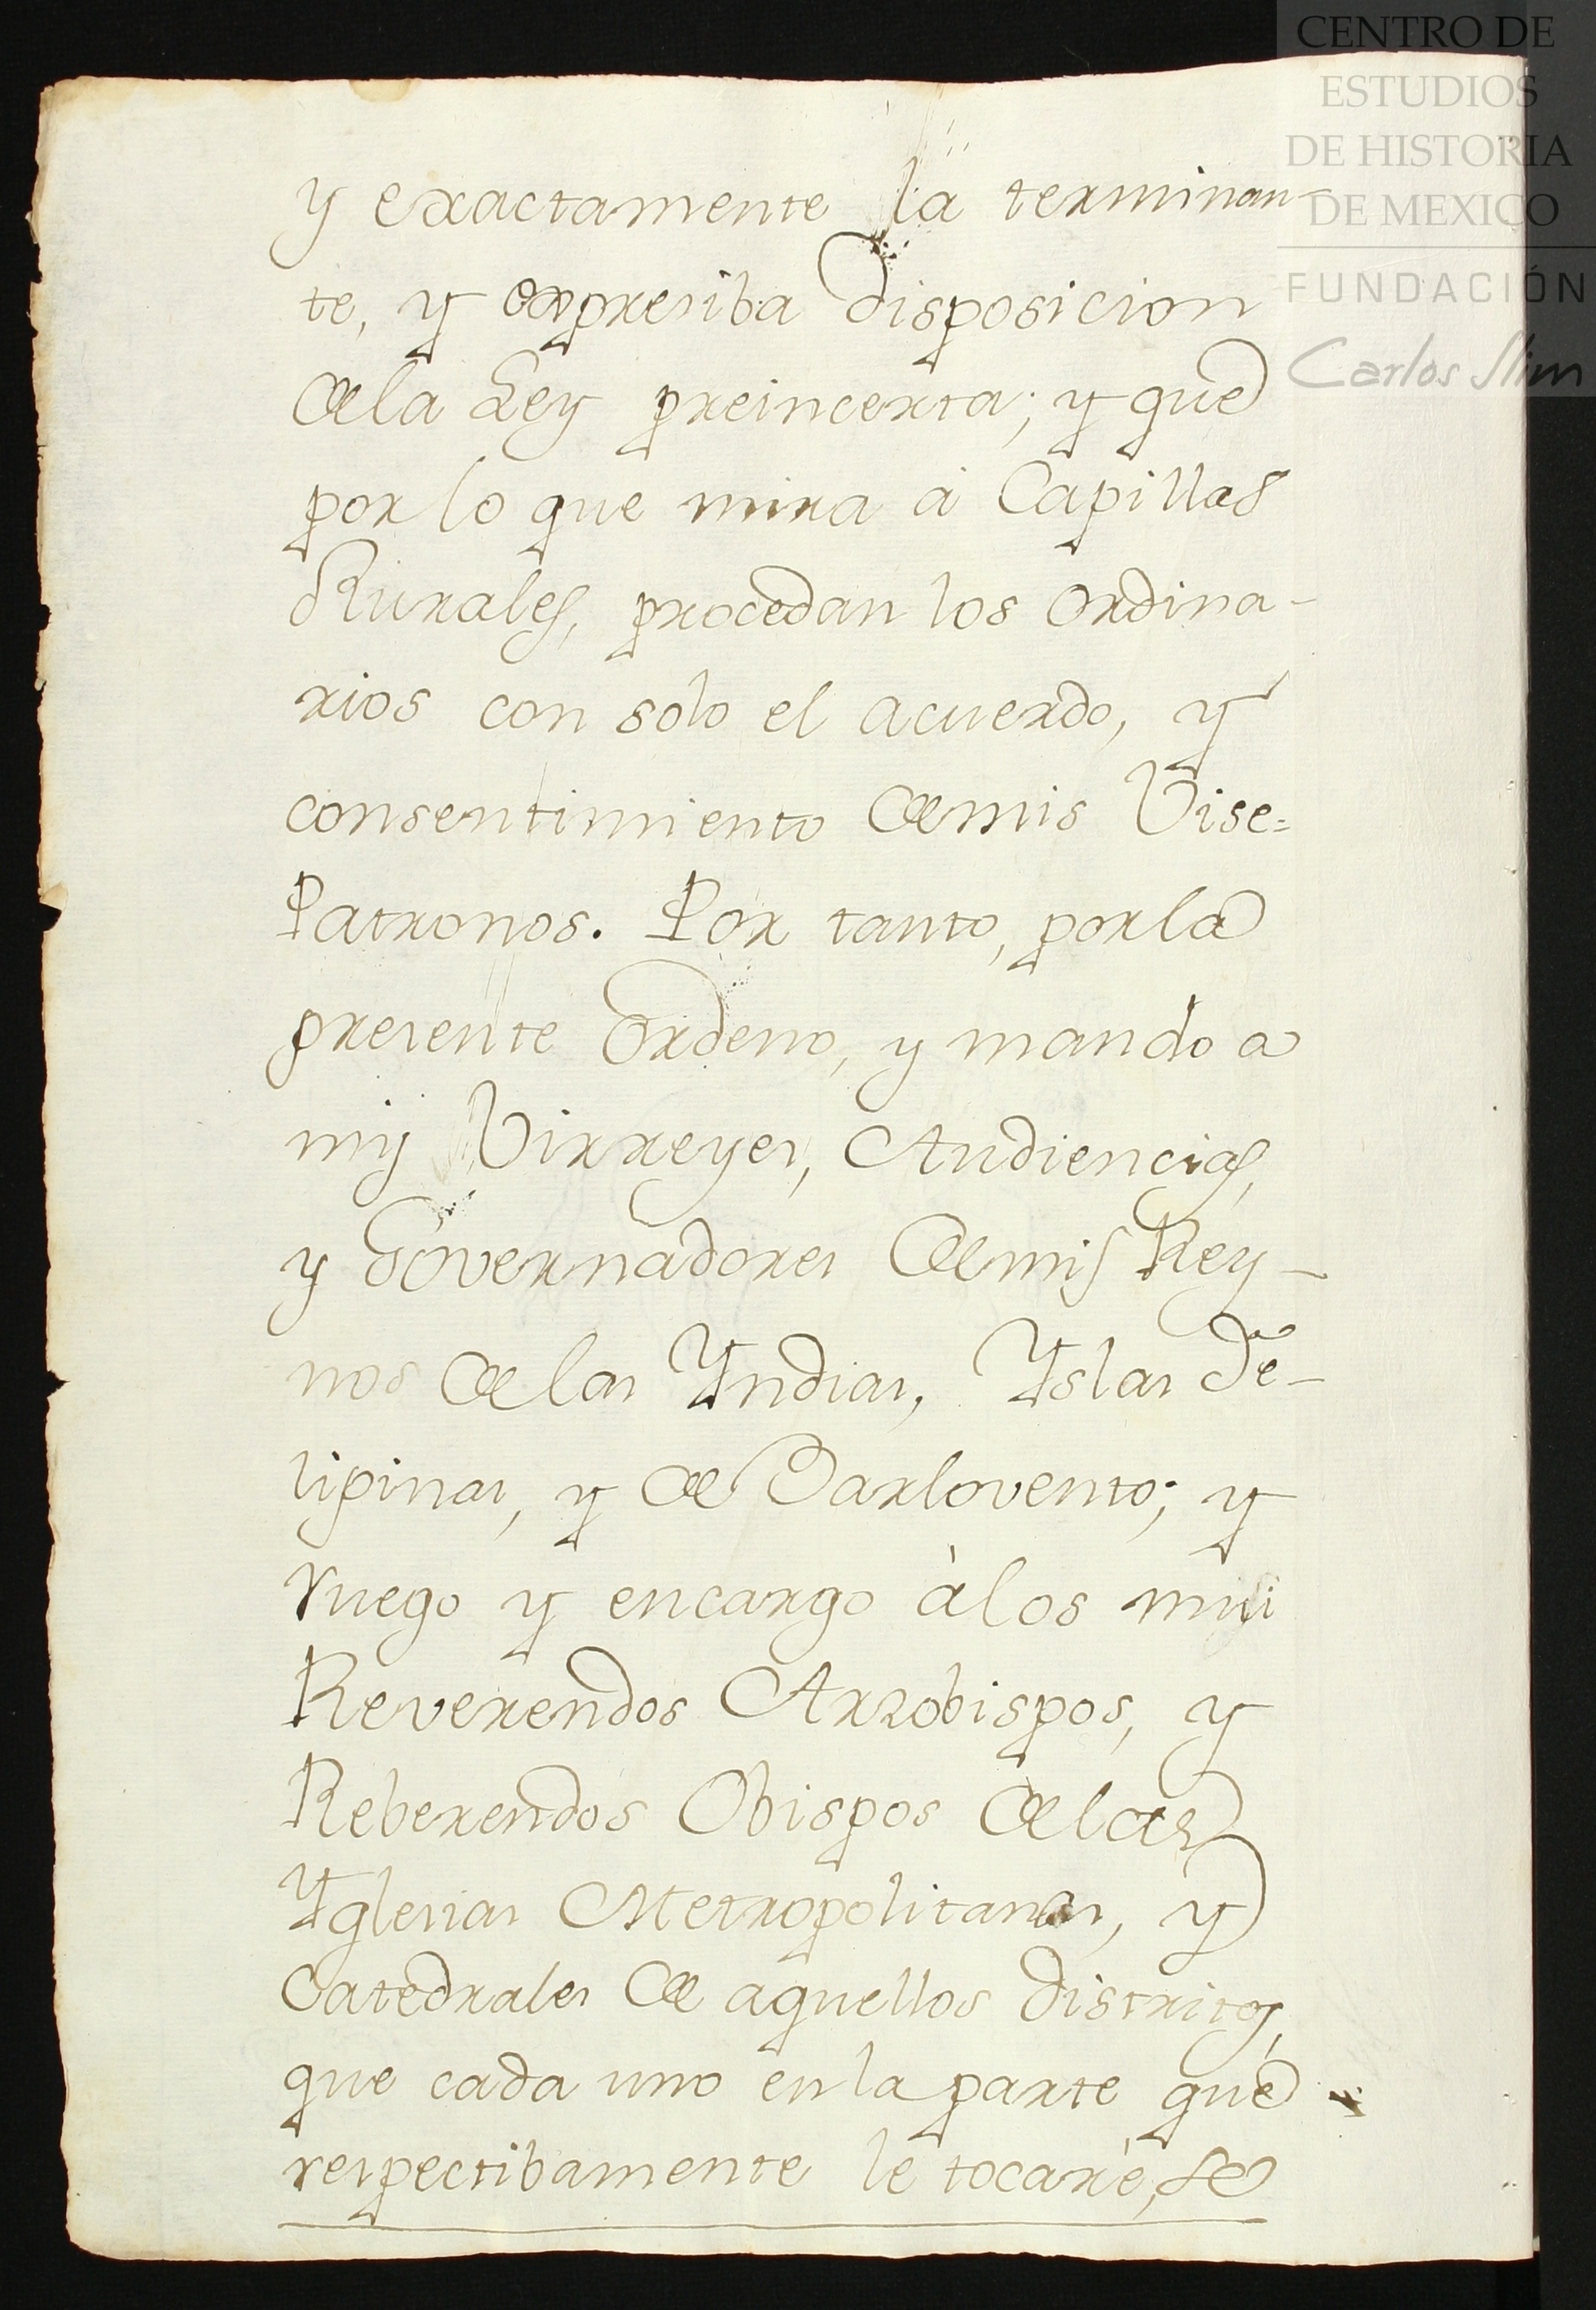 CENTRO DE
ESTUDIOS
DE HISTORIA
DE MEXICO
FUNDACIÓN
Carlos Slim
y exactamente la terminan-
te, y expresiba disposicion
de la Ley preincerta; y que
por lo que mira á Capillas
Rurales, procedan los ordina-
rios con solo el acuerdo, y
consentimiento de mis Vise=
Patronos. Por tanto, por la
presente Ordeno, y mando a
mis Virreyes, Audiencias,
y Governadores de mis Rey-
nos de las Yndias, Yslas
lipinas, y de Barlovento; y
ruego y encargo à los mui
Reverendos Arzobispos, y
Reberendos Obispos de las
Yglesias Metropolitanas, y
Catedrales de aquellos distritos,
que cada uno en la parte que
respectibamente le tocare, se